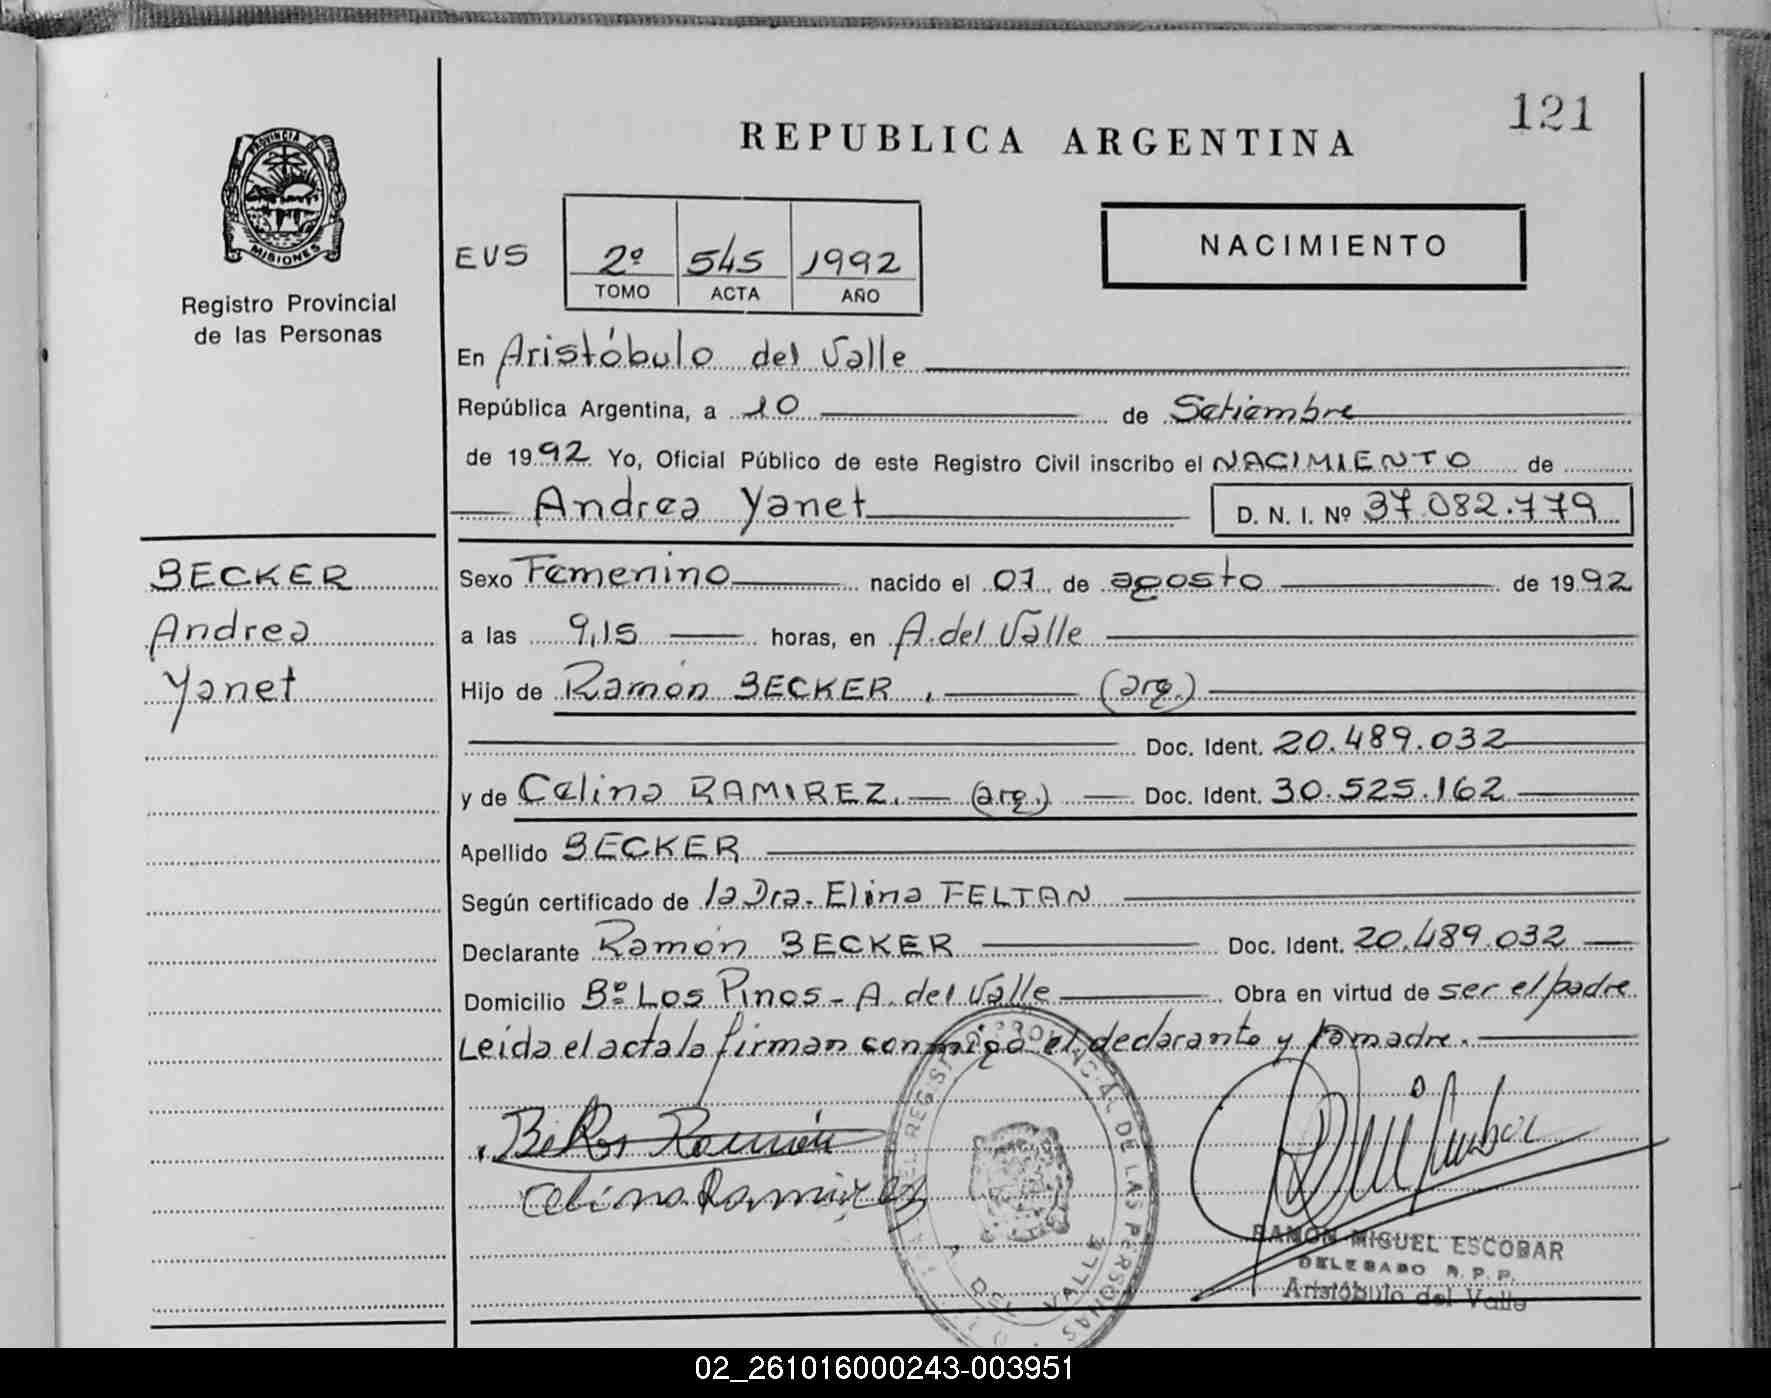 121
REPUBLICA ARGENTINA
PROVINCIA DE
MISIONES
Registro Provincial
de las Personas
EVS 2º 545 1992
TOMO ACTA AÑO
NACIMIENTO
En Aristóbulo del Valle
República Argentina, a 10 de Setiembre
de 1992 Yo, Oficial Público de este Registro Civil inscribo el NACIMIENTO de
Andrea Yanet D. N. I. Nº 37.082.779
BECKER
Andrea
Yanet
Sexo Femenino nacido el 01 de agosto de 1992
a las 9,15 horas, en A. del Valle
Hijo de Ramón BECKER, (arg.)
Doc. Ident. 20.489.032
y de Celina RAMIREZ. (arg.) Doc. Ident. 30.525.162
Apellido BECKER
Según certificado de la Dra. Elina FELTAN
Declarante Ramón BECKER Doc. Ident. 20.489.032
Domicilio Bº Los Pinos - A. del Valle Obra en virtud de ser el padre
Leida el acta la firman conmigo el declarante y la madre.
Ramón
Celina Ramirez
REGISTRO PROVINCIAL DE LAS PERSONAS
A. DEL VALLE
RAMON MIGUEL ESCOBAR
DELEGADO R. P. P.
Aristóbulo del Valle
02_261016000243-003951